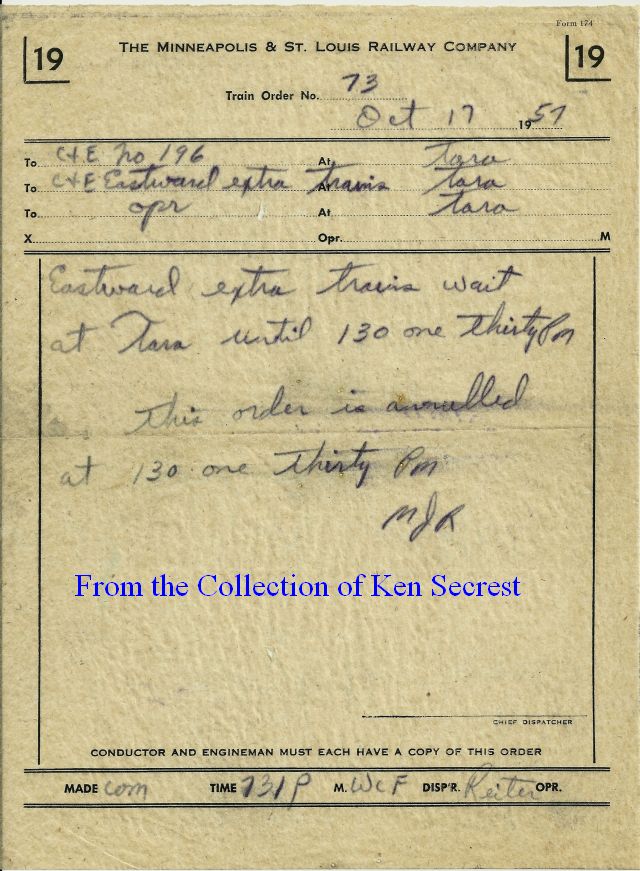 Form 174
19 THE MINNEAPOLIS & ST. LOUIS RAILWAY COMPANY 19
Train Order No. 73
Oct 17 1957
To C+E No 196 At Tara
To C+E Eastward extra trains At Tara
To opr At Tara
X Opr. M
Eastward extra trains wait
at Tara until 130 one thirty Pm
This order is annulled
at 130 one thirty Pm
MJR
From the Collection of Ken Secrest
CHIEF DISPATCHER
CONDUCTOR AND ENGINEMAN MUST EACH HAVE A COPY OF THIS ORDER
MADE com TIME 731P M. WCF DISP'R. Reiter OPR.